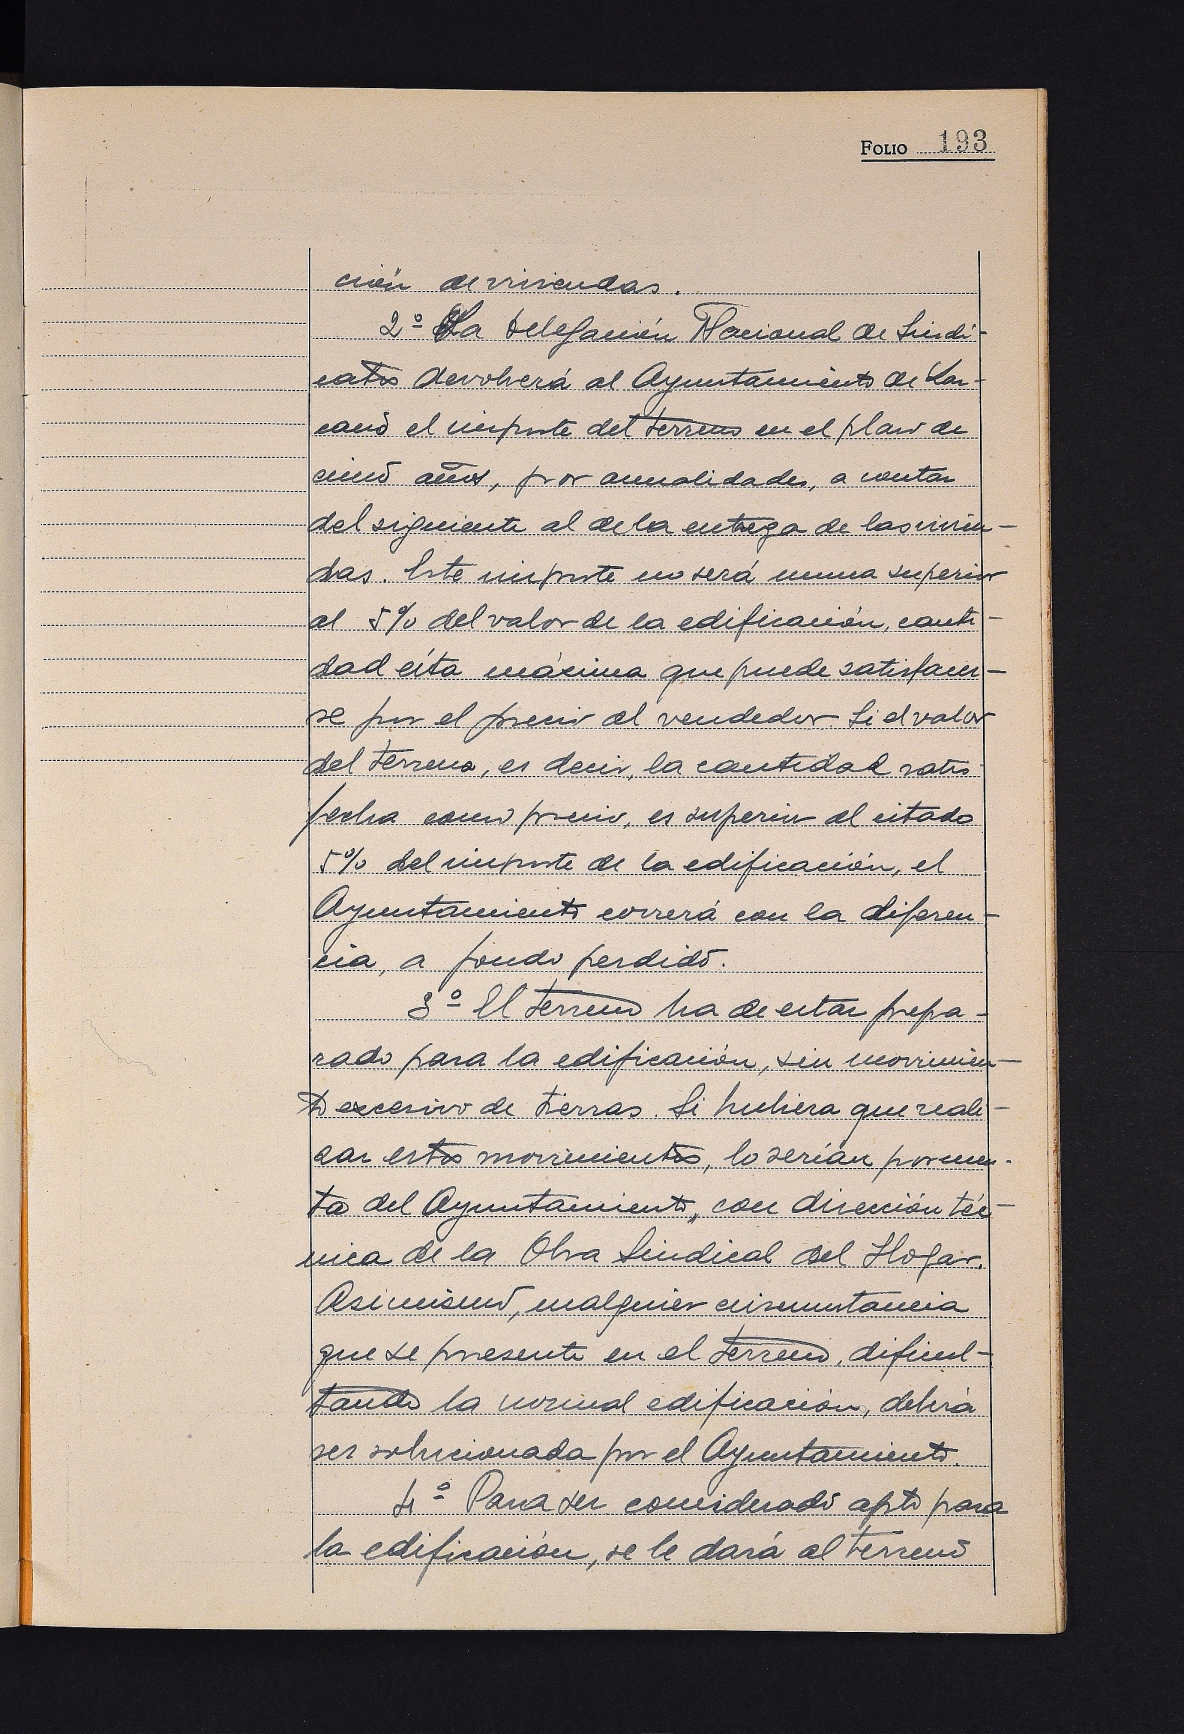 FOLIO 193
ción de viviendas.
2º La Delegación Nacional de Sindi-
catos devolverá al Ayuntamiento de Laz-
cano el importe del terreno en el plazo de
cinco años, por anualidades, a contar
del siguiente al de la entrega de las vivien-
das. Este importe no será nunca superior
al 5% del valor de la edificación, canti-
dad ésta máxima que puede satisfacer-
se por el precio al vendedor. Si el valor
del terreno, es decir, la cantidad satis-
fecha como precio, es superior al citado
5% del importe de la edificación, el
Ayuntamiento correrá con la diferen-
cia, a fondo perdido.
3º El terreno ha de estar prepa-
rado para la edificación, sin movimien-
to excesivo de tierras. Si hubiera que reali-
zar estos movimientos, lo serían por cuen-
ta del Ayuntamiento, con dirección téc-
nica de la Obra Sindical del Hogar.
Asimismo, cualquier circunstancia
que se presente en el terreno, dificul-
tando la normal edificación, deberá
ser solucionada por el Ayuntamiento.
4º Para ser considerado apto para
la edificación, se le dará al terreno